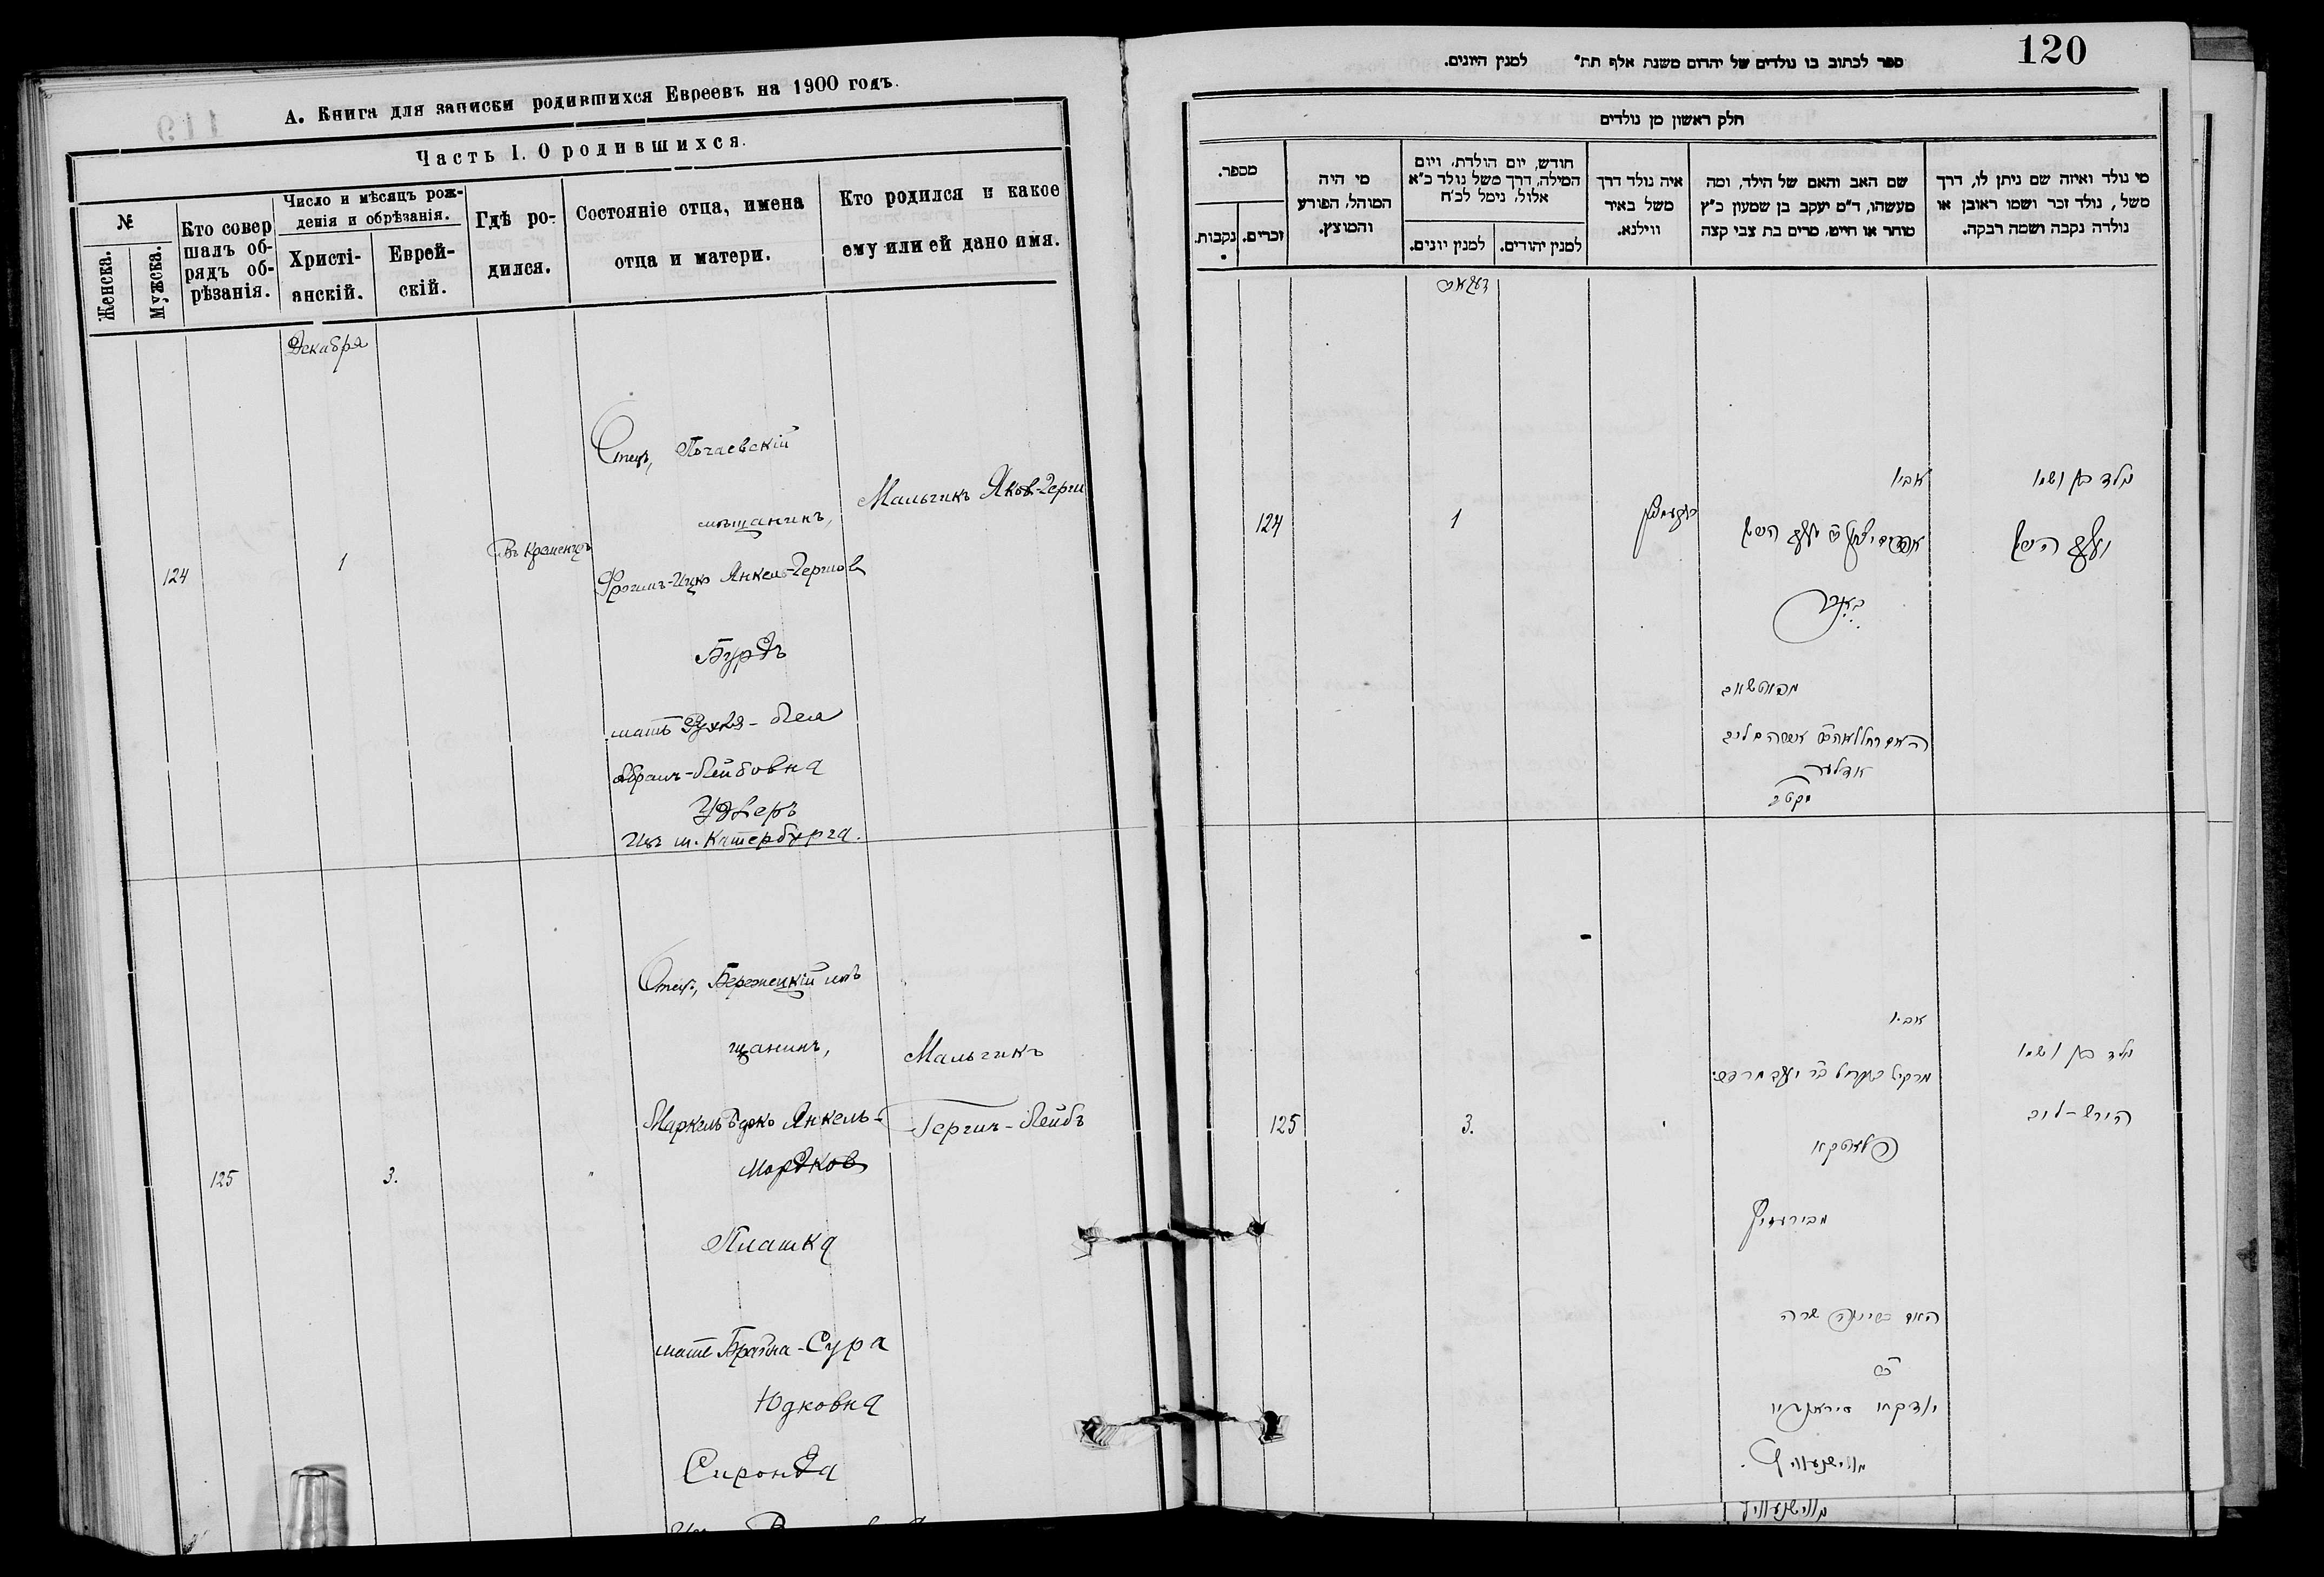 А. Книга для записки родившихся Евреевъ на 1900 годъ.
Часть I. О родившихся.
№
Женска.
Мужска.
Кто совер
шалъ об-
рядъ об-
рѣзанія.
Число и мѣсяцъ рож-
денія и обрѣзанія.
Христі-
анскій.
Еврей-
скій.
Гдѣ ро-
дился.
Состояніе отца, имена
отца и матери.
Кто родился и какое
ему или ей дано имя.
Декабря
124
1
Въ Кременцѣ
Отецъ, Почаевскій
мѣщанинъ,
Фроимъ-Ицко Янкель-Гершов
Бурдъ
мать Рухля-Лея
Абрамъ-Лейбовна
Удлеръ
изъ м. Катербурга.
Мальчикъ Яков-Герш
125
3.
"
Отецъ, Бережецкій мѣ
щанинъ,
Маркель Берко Янкель-
Мордков
Плашка
мать Брайна-Сура
Юдковна
Сиронда
Мальчикъ
Гершъ-Лейбъ
120
ספר לכתוב בו נולדים של יהודים משנת אלף תת״ למנין היונים.
חלק ראשון מן נולדים
מספר.
נקבות.
זכרים.
מי היה
המוהל, הפורע
והמוצץ.
חודש, יום הולדת, ויום
המילה, דרך משל נולד כ״א
אלול, נימל לכ״ח
למנין יונים.
למנין יהודים.
איה נולד דרך
משל באיר
ווילנא.
שם האב והאם של הילד, ומה
מעשהו, ד״מ יעקב בן שמעון כ״ץ
סוחר או חייט, מרים בת צבי קצה
מי נולד ואיזה שם ניתן לו, דרך
משל, נולד זכר ושמו ראובן או
נולדה נקבה ושמה רבקה.
דעקאב
124
1
קרעמעניץ
אביו
יעקב הערש
בורד
מפאטשאוב
אדלער
נולד בן ושמו
יעקב הערש
125
3.
אביו
פלאשקא
האם בריינה שרה
בת
מווישנעוויץ
מווישנעוויץ
נולד בן ושמו
הירש-ליב